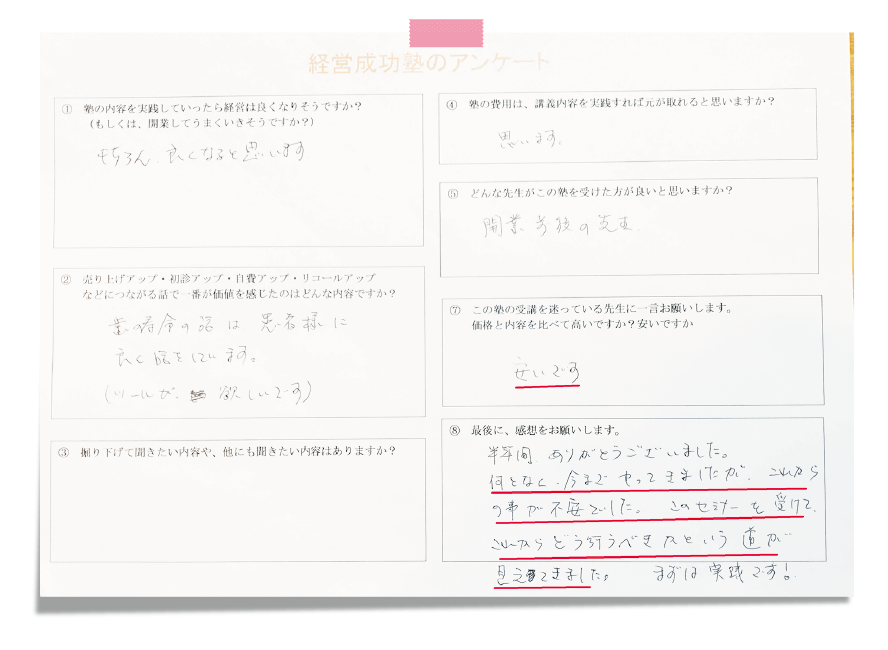 経営成功塾のアンケート
① 塾の内容を実践していったら経営は良くなりそうですか?
(もしくは、開業してうまくいきそうですか?)
もちろん、良くなると思います
② 売り上げアップ・初診アップ・自費アップ・リコールアップ
などにつながる話で一番が価値を感じたのはどんな内容ですか?
歯の寿命の話は 患者様に
良く話をしています。
(ツールが、欲しいです)
③ 掘り下げて聞きたい内容や、他にも聞きたい内容はありますか?
④ 塾の費用は、講義内容を実践すれば元が取れると思いますか?
思います。
⑤ どんな先生がこの塾を受けた方が良いと思いますか?
開業前後の先生
⑦ この塾の受講を迷っている先生に一言お願いします。
価格と内容を比べて高いですか?安いですか
安いです
⑧ 最後に、感想をお願いします。
半年間 ありがとうございました。
何となく、今まで やってきましたが、これから
の事が不安でした。 このセミナーを受けて、
これからどう行うべきかという道が
見えてきました。 まずは実践です!